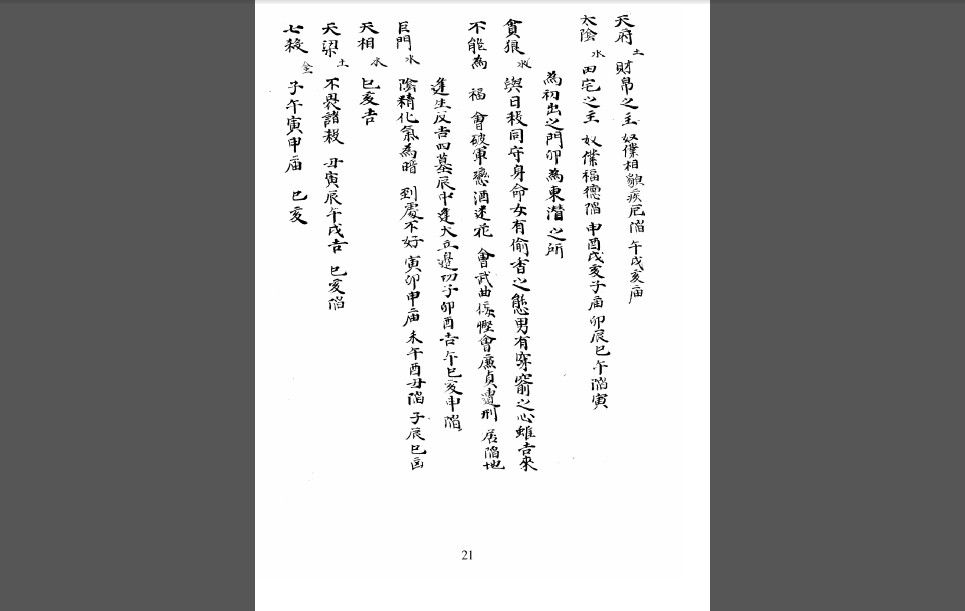 天府土 財帛之主 奴僕相貌疾厄陷 午戌亥庙
太陰水 田宅之主 奴僕福德陷 申酉戌亥子庙 卯辰巳午陷寅
為初出之門卯為東潛之所
貪狼水 與日殺同守身命女有偷香之態男有穿窬之心雖吉來
不能為福 會破軍戀酒迷花 會武曲 慳會廉貞遭刑 居陷地
逢生反吉四墓辰中逢 子卯酉吉午巳亥申陷
巨門水 陰精化氣為暗 到處不好 寅卯申庙 未午酉丑陷 子辰巳凶
天相水 巳亥吉
天梁土 不畏諸殺 丑寅辰午戌吉 巳亥陷
七殺金 子午寅申庙 巳亥
21